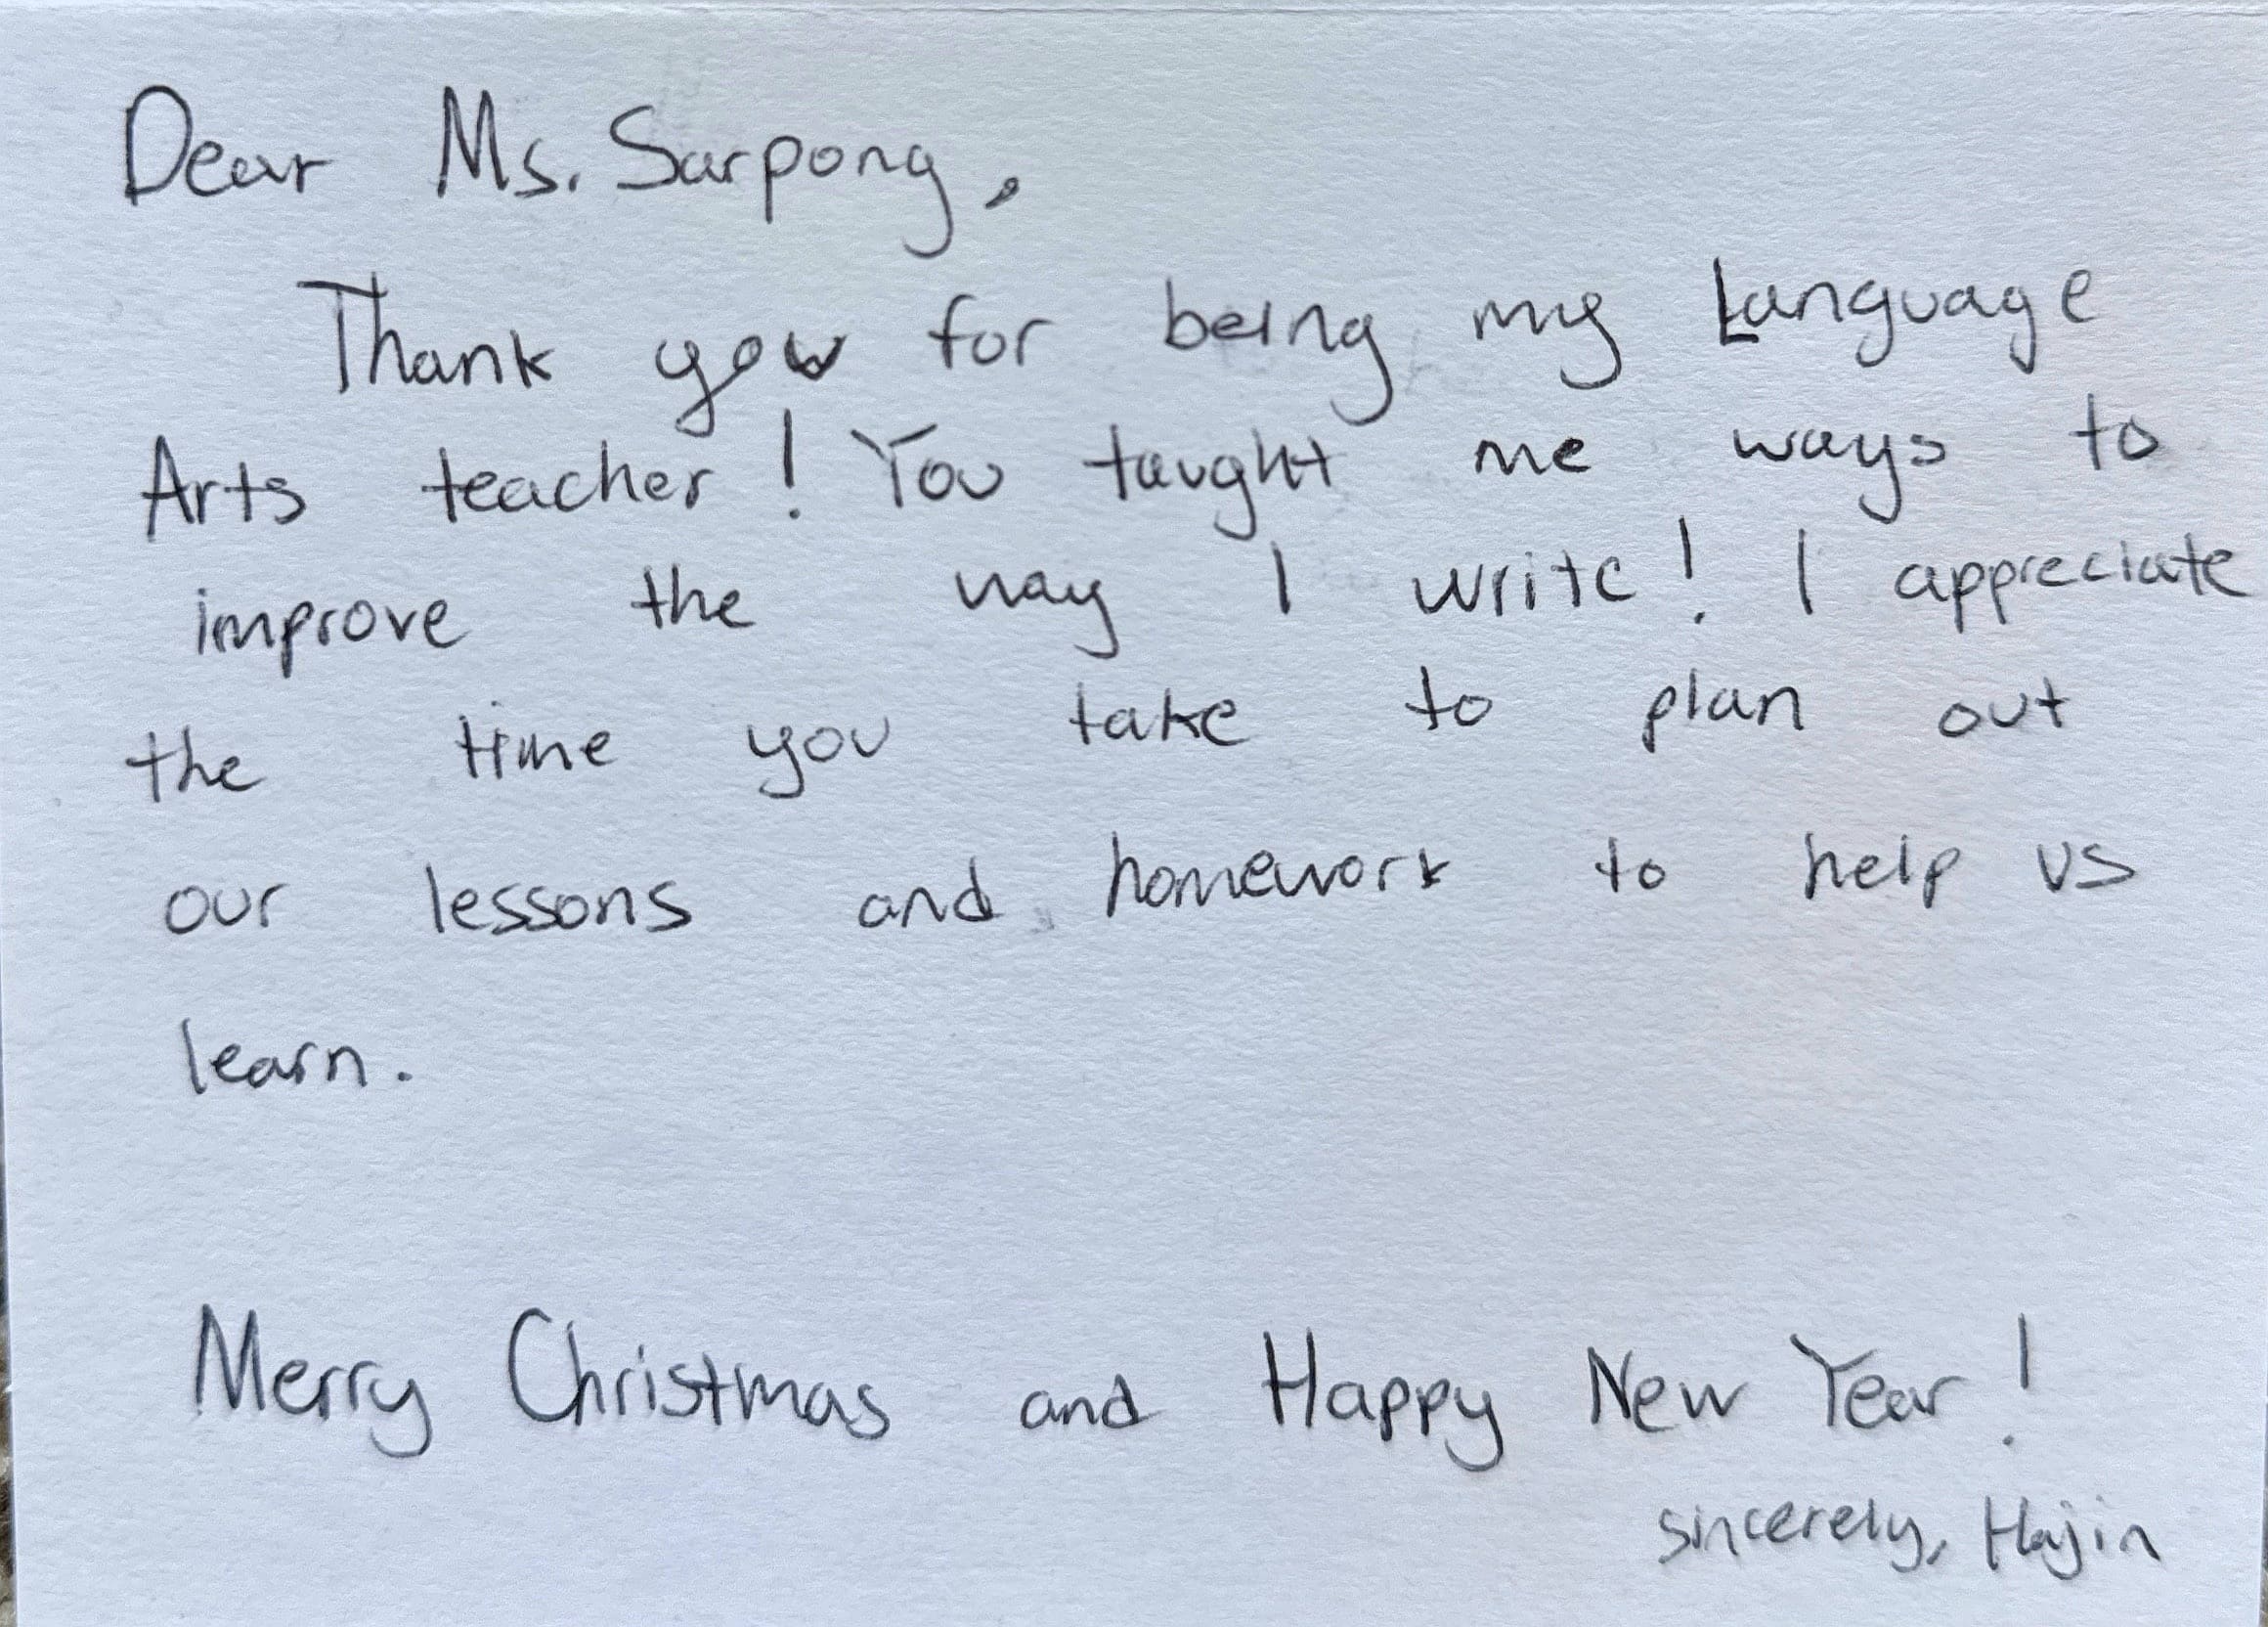 Dear Ms. Sarpong,
Thank you for being my Language
Arts teacher! You taught me ways to
improve the way I write! I appreciate
the time you take to plan out
our lessons and homework to help us
learn.
Merry Christmas and Happy New Year!
sincerely, Hajin